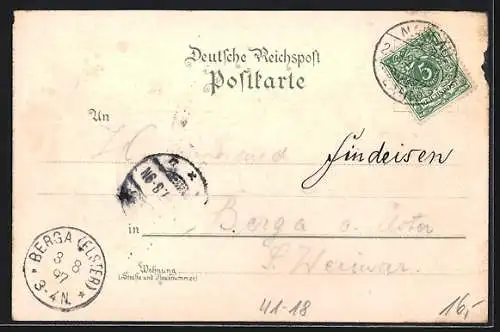 Deutsche Reichspost
Postkarte
5
An
Findeisen
N6-8
in Berga a. Elster
S. Weimar.
Wohnung
(Straße und Hausnummer)
* BERGA (ELSTER) *
8 8
97
3-4N.
41-18
16,-